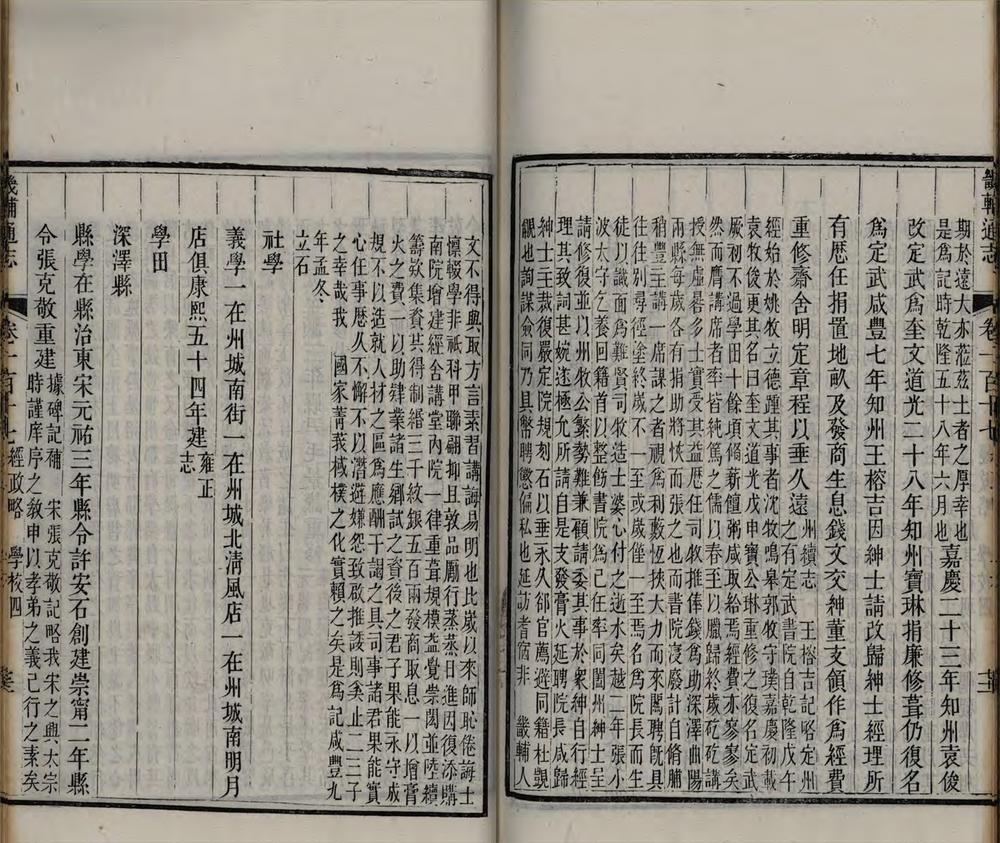 畿輔通志
卷一百十七
期於遠大亦蒞茲土者之厚幸也
是爲記時乾隆五十八年六月也
嘉慶二十三年知州袁俊
改定武爲奎文道光二十八年知州寶琳捐廉修葺仍復名
爲定武咸豐七年知州王榕吉因紳士請改歸紳士經理所
有歷任捐置地畝及發商生息錢文交紳董支領作爲經費
重修齋舍明定章程以垂久遠
州續志 王榕吉記略定州
之有定武書院自乾隆戊午
經始於姚牧立德踵其事者沈牧鳴皋郭牧守璞嘉慶初載
袁牧俊更其名曰奎文道光戊申寶公琳重修之復名定武
厥初不過學田十餘項脩薪饘粥咸取給焉經費亦寥寥矣
然而膺講席者率皆純篤之儒以春至以臘歸終歲矻矻講
授無虛晷多士實受其益歷任司牧推俸錢爲助深澤曲陽
兩縣每歲各有捐助將恢而張之也而書院寖廢計自脩脯
稍豐主講一席謀之者視爲利藪恆挾大力而來關聘旣具
往往別尋徑塗終歲不一至或歲僅一至焉名爲院長而生
徒以識面爲難賢司牧造士婆心付之逝水矣越二年張小
波太守乞養回籍首以整飭書院爲己任率同闔州紳士呈
請修復並以州牧公繁勢難兼顧請委其事於衆紳自行經
理其致詞甚婉逑極允所請自是支發膏火延聘院長咸歸
紳士主裁復嚴定院規刻石以垂永久卻官薦避同籍杜覬
覦也詢謀僉同乃具幣聘懲偏私也延訪者宿非
畿輔人
文不得與取方言素習講誨易明也比歲以來師恥倦誨士
懍輟學非祇科甲聯翩抑且敦品勵行蒸蒸日進因復添購
南院增建經舍講堂內院一律重葺規模益覺崇閎並陸續
籌款集資共得制緡三千紋銀五百兩發商取息一以增膏
火之費一以助肄業諸生鄉試之資後之君子果能永守成
規不以造就人材之區爲應酬干謁之具司事諸君果能實
心任事歷久不懈不以潛避嫌怨致啟推諉則柰止二三子
之幸哉我 國家菁莪棫樸之化實賴之矣是爲記咸豐九
年孟冬
立石
社學
義學一在州城南街一在州城北清風店一在州城南明月
店俱康熙五十四年建
雍正
志
學田
深澤縣
縣學在縣治東宋元祐三年縣令許安石創建崇甯二年縣
令張克敬重建
據碑記補 宋張克敬記略我宋之興太宗
時謹庠序之敎申以孝弟之義已行之素矣
畿輔通志
卷一百十七 經政略 學校四